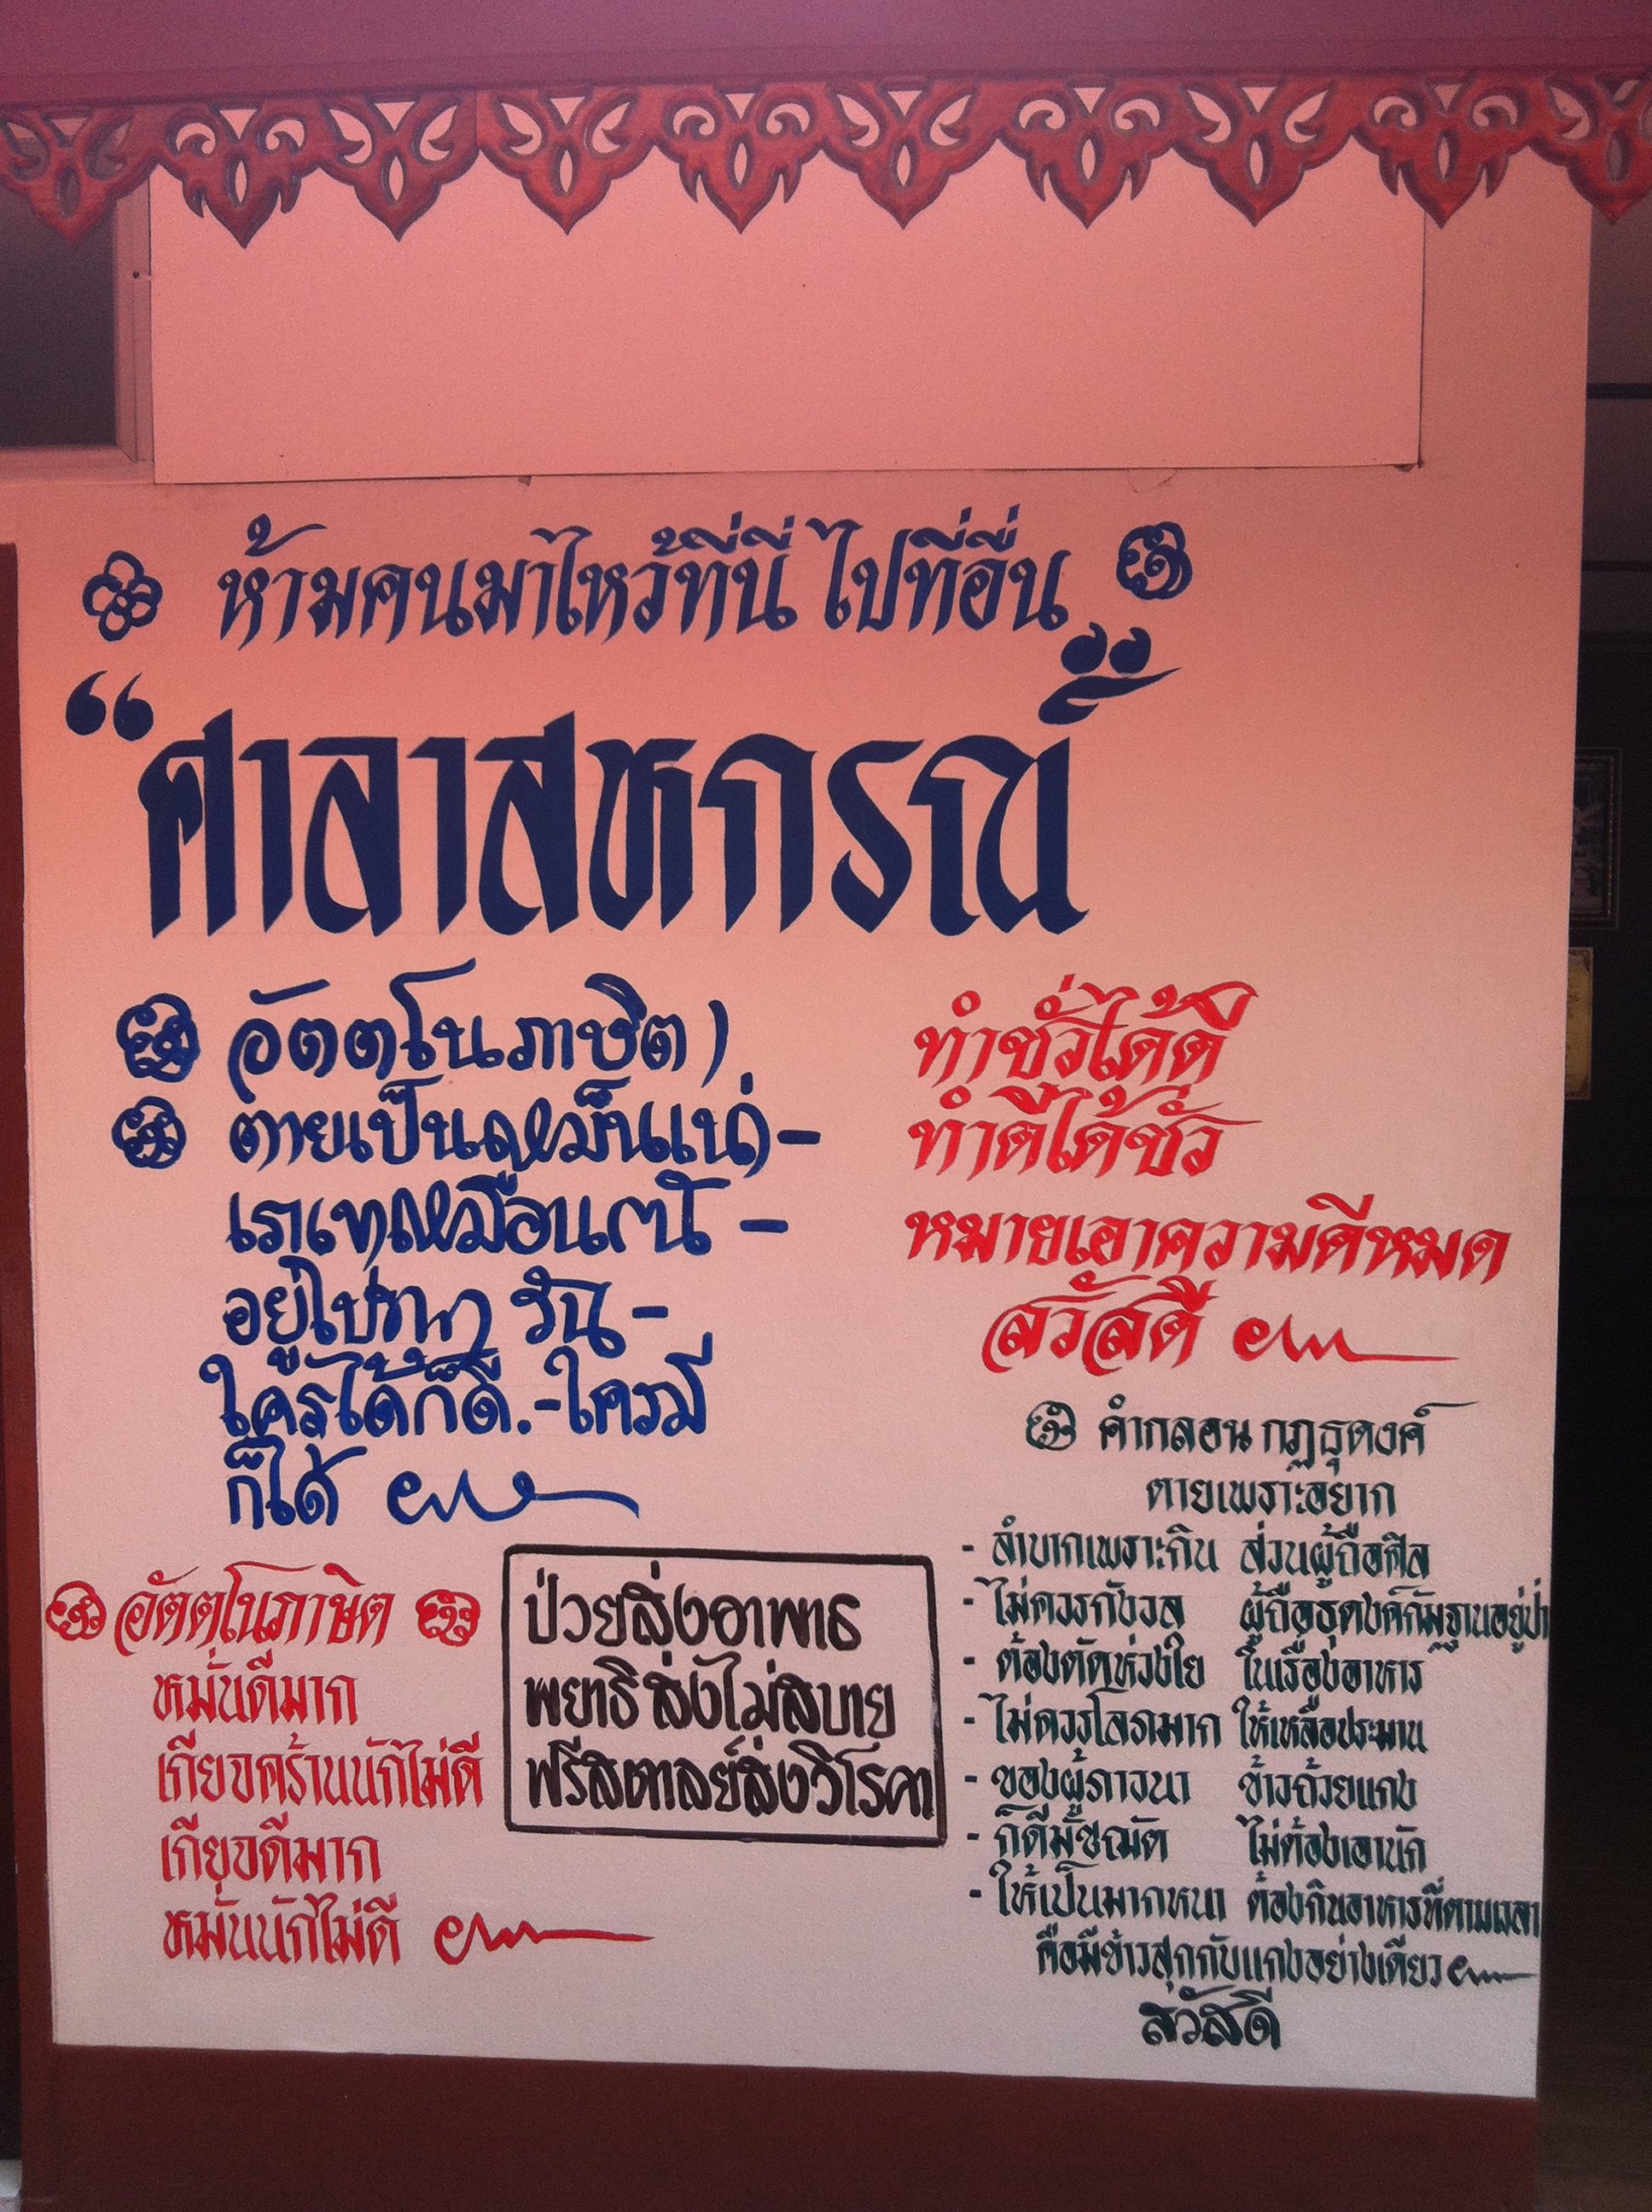 ห้ามคนมาไหว้ที่นี่ ไปที่อื่น
“ศาลาสหกรณ์”
อัตตโนภาษิต)
ตายเป็นเหม็นเน่า-
เราเขาเหมือนกัน -
อยู่ไปทุกๆ วัน -
ใครได้ก็ดี.-ใครมี
ก็ได้
ทำชั่วได้ดี
ทำดีได้ชั่ว
หมายเอาความดีหมด
สวัสดี
อัตตโนภาษิต
หมั่นดีมาก
เกียจคร้านนักไม่ดี
เกียจดีมาก
หมั่นนักไม่ดี
ป่วยสิ่งอาพาธ
พยาธิสิ่งไม่สบาย
ฟรีสตาลย์สิ่งวิโรคา
คำกลอน กฎธุดงค์
ตายเพราะอยาก
- ลำบากเพราะกิน ส่วนผู้ถือศีล
- ไม่ควรกังวล ผู้ถือธุดงค์กัมฐานอยู่ป่า
- ต้องตัดห่วงใย ในเรื่องอาหาร
- ไม่ควรโลภมาก ให้เหลือประมาน
- ของผู้ภาวนา ข้าวถ้วยแกง
- ก็ดีมั้ชฌัต ไม่ต้องเอานัก
- ให้เป็นมากหนา ต้องกินอาหารที่ตามเวลา
คือมีข้าวสุกกับแกงอย่างเดียว
สวัสดี